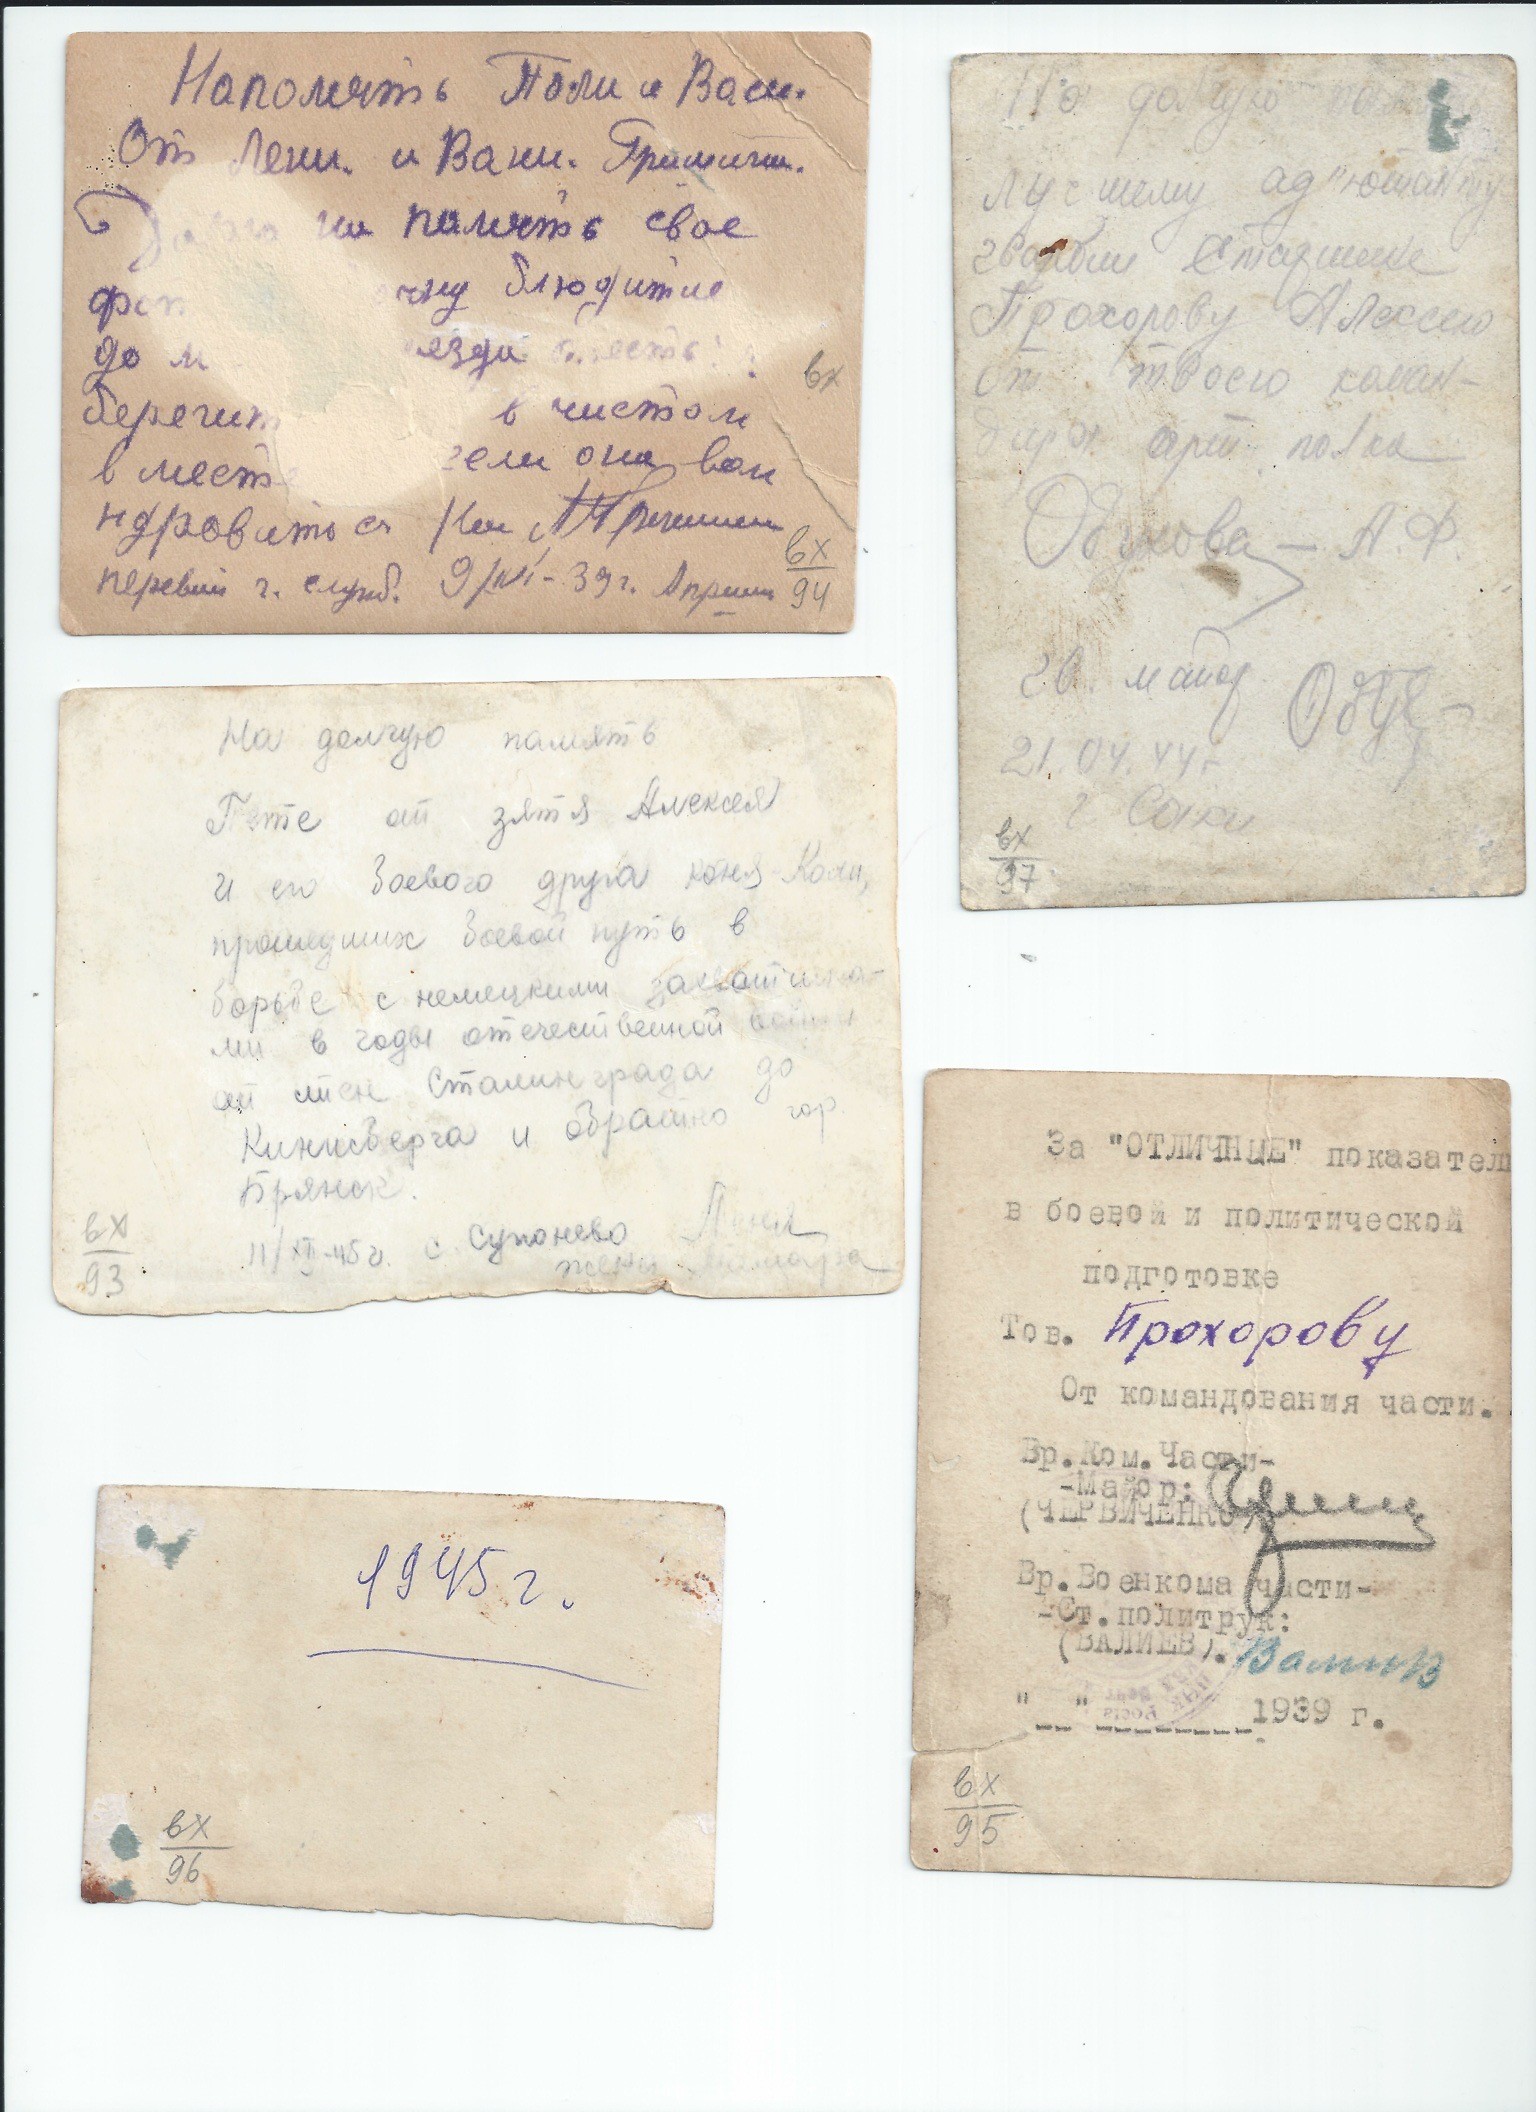 Напомять Поли и Васи.
От Лени. и Вани. Гримичи.
на помять свое
фот чку блюдитие
до м езда
берегит в чистом
в месте если она вам
ндровиться
первий г. служ. 9/ -39г.
вх
вх
94
На долгую память
лучшему ад"ютанту
гвардии старшине
Прохорову Алексею
от твоего коман-
дира арт. полка
Обухова – А.Ф.
гв. майор Обух
21.04.44г.
г Саки
вх
97
На долгую память
Пете от зятя Алексея
и его боевого друга коня
прошедших боевой путь в
борьбе с немецкими захватчика-
ми в годы отечественной войны
от стен Сталинграда до
Кинисберга и обратно гор.
Брянск.
11/XII-45г. с. Супонево Леня
вх
93
За "ОТЛИЧНЫЕ" показател
в боевой и политической
подготовке
Тов. Прохорову
От командования части.
Вр.Ком.Части-
-Майор:
(ЧЕРВИЧЕНКО)
Вр.Военкома части-
-Ст.политрук:
(ВАЛИЕВ). Валиев
"__"________1939 г.
вх
95
1945 г.
вх
96